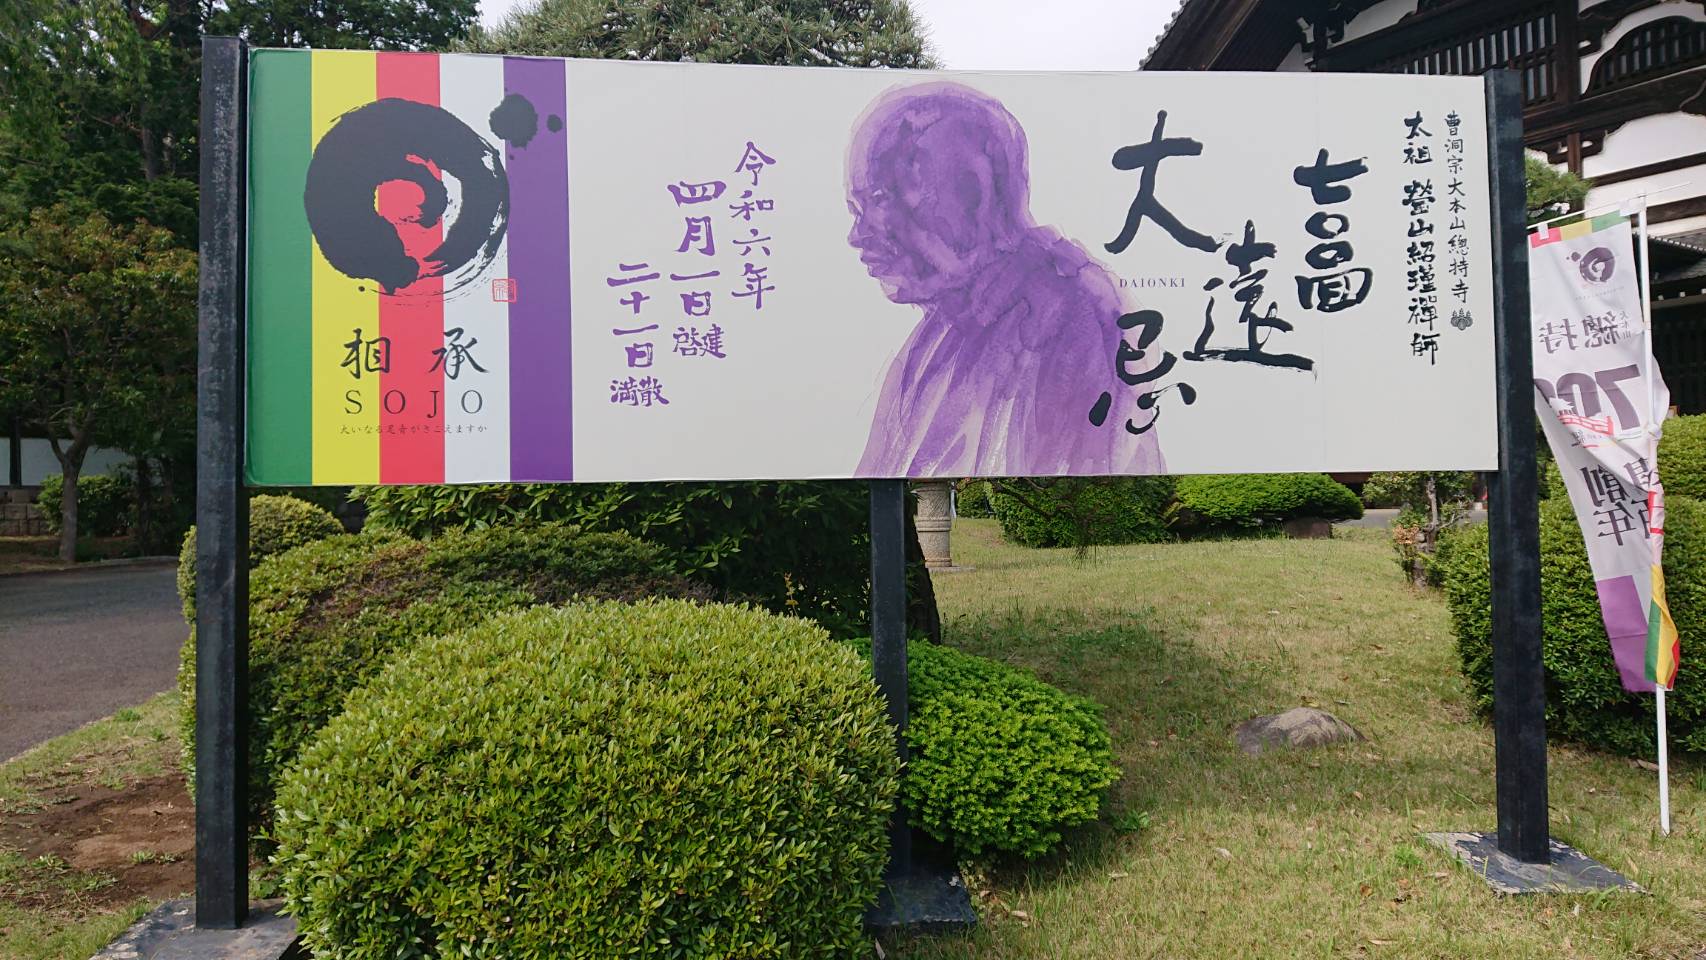 曹洞宗大本山總持寺
太祖 瑩山紹瑾禪師
七〇〇回
大遠忌
DAIONKI
令和六年
四月一日啓建
二十一日満散
相承
SOJO
大いなる足音がきこえますか
大本山
總持